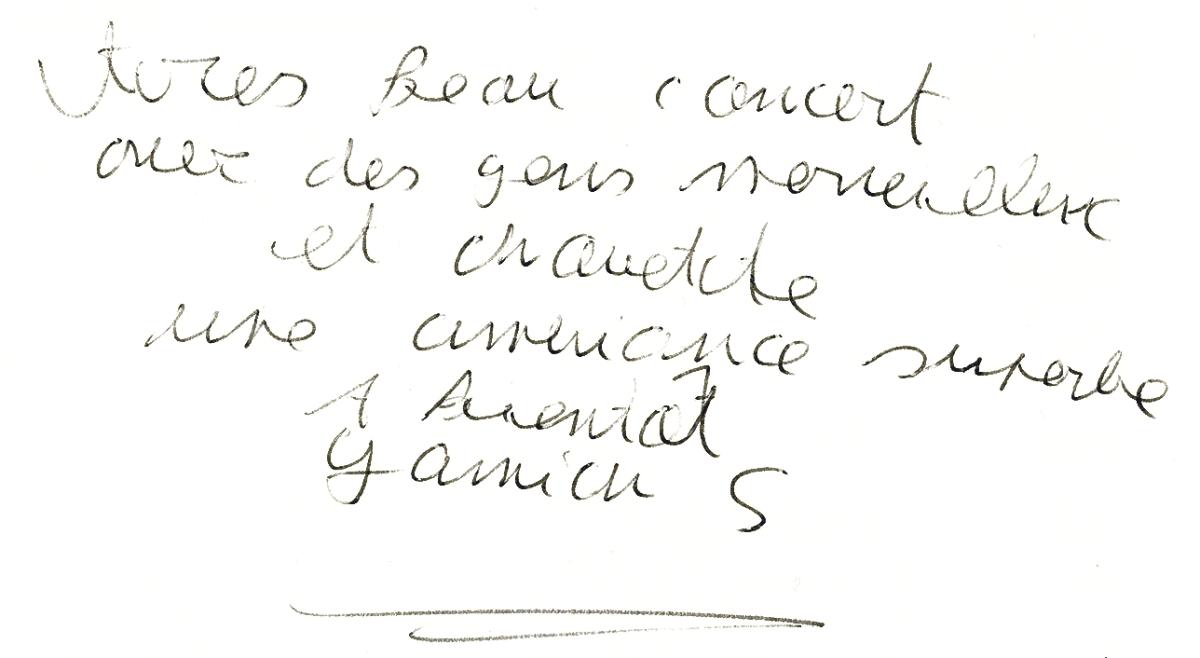 très beau concert
avec des gens merveilleux
et chouette
une ambiance superbe
A bientôt
Yannick S